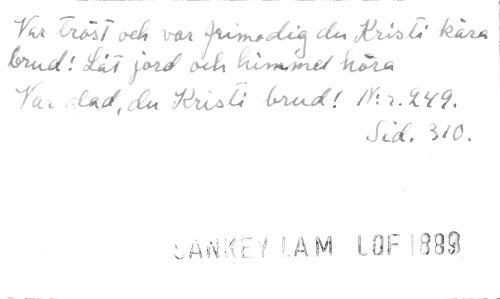 Var tröst och var frimodig du Kristi kära
brud! Låt jord och himmel höra
Var glad, du Kristi brud! N:r. 249.
Sid. 310.
SANKEY LAM LOF 1889